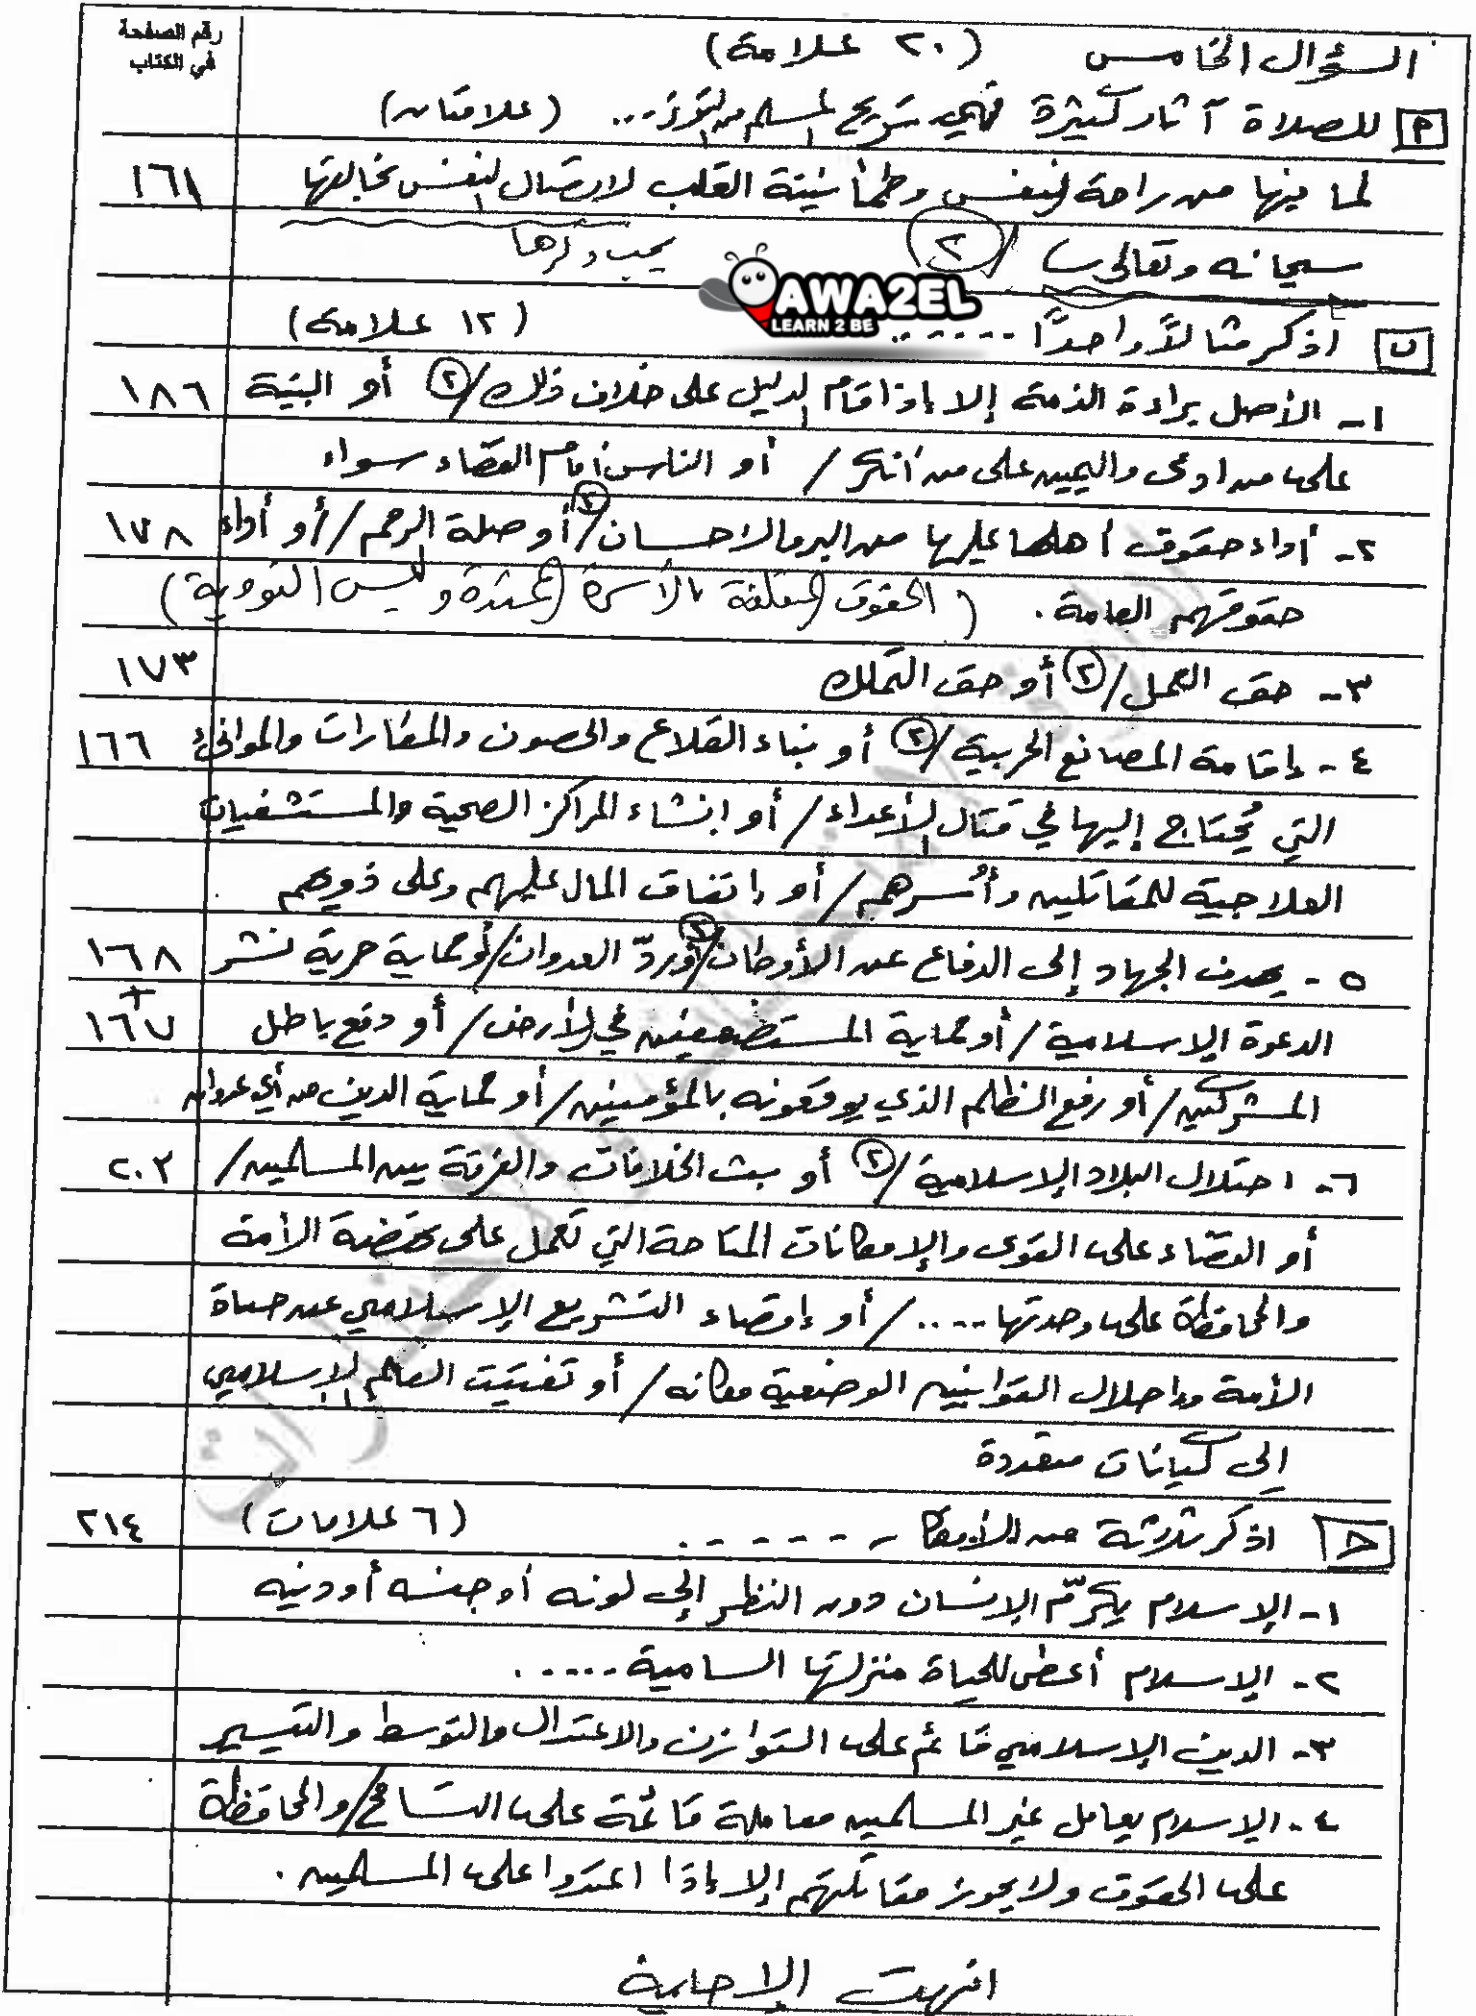 رقم الصفحة
في الكتاب
السؤال الخامس (٢٠ علامة)
أ للصلاة آثار كثيرة فهي تريح المسلم من التوتر... (علامتان)
لما فيها من راحة النفس وطمأنينة القلب لاتصال النفس بخالقها ١٦١
سبحانه وتعالى / ٢ يجب ذكرها
AWA2EL
LEARN 2 BE
ب اذكر مثالاً واحداً ....... (١٢ علامة)
١- الأصل براءة الذمة إلا إذا قام الدليل على خلاف ذلك / ٢ أو البينة ١٨٦
على من ادعى واليمين على من أنكر / أو الناس أمام القضاء سواء
٢- أداء حقوق أهلها عليها من البر والاحسان / ٢ أو صلة الرحم / أو أداء ١٧٨
حقوقهم العامة. (الحقوق المتعلقة بالأسرة الممتدة وليس النووية)
٣- حق العمل / ٢ أو حق التملك ١٧٣
٤- إقامة المصانع الحربية / ٢ أو بناء القلاع والحصون والمطارات والموانئ ١٦٦
التي يُحتاج إليها في قتال الأعداء / أو انشاء المراكز الصحية والمستشفيات
العلاجية للمقاتلين وأُسرهم / أو إنفاق المال عليهم وعلى ذويهم
٥- يهدف الجهاد إلى الدفاع عن الأوطان / ٢ أو ردّ العدوان / أو حماية حرية نشر ١٦٨
الدعوة الإسلامية / أو حماية المستضعفين في الأرض / أو دفع باطل + ١٦٧
المشركين / أو رفع الظلم الذي يوقعونه بالمؤمنين / أو حماية الدين من أي عدوان
٦- احتلال البلاد الإسلامية / ٢ أو بث الخلافات والفرقة بين المسلمين / ٢٠٣
أو القضاء على القوى والإمكانات المتاحة التي تعمل على نهضة الأمة
والمحافظة على وحدتها .... / أو إقصاء التشريع الإسلامي عن حياة
الأمة وإحلال القوانين الوضعية مكانه / أو تفتيت العالم الإسلامي
إلى كيانات متعددة
ج اذكر ثلاثة من الأفكار ...... (٦ علامات) ٢١٤
١- الإسلام يكرّم الإنسان دون النظر إلى لونه أو جنسه أو دينه
٢- الإسلام أعطى للحياة منزلتها السامية ......
٣- الدين الإسلامي قائم على التوازن والاعتدال والتوسط والتيسير
٤- الإسلام يعامل غير المسلمين معاملة قائمة على التسامح / والمحافظة
على الحقوق ولا يجوز مقاتلتهم إلا إذا اعتدوا على المسلمين.
انتهت الإجابة